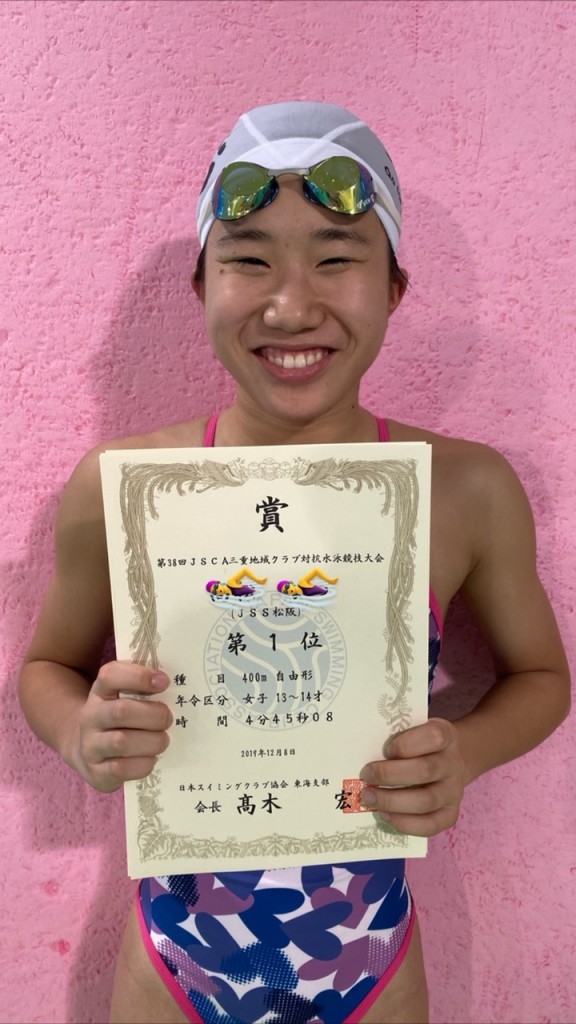 賞
第38回JSCA三重地域クラブ対抗水泳競技大会
(JSS松阪)
第 1 位
種 目 400m 自由形
年令区分 女子 13~14才
時 間 4分45秒08
2019年12月8日
日本スイミングクラブ協会 東海支部
会長 髙木 宏